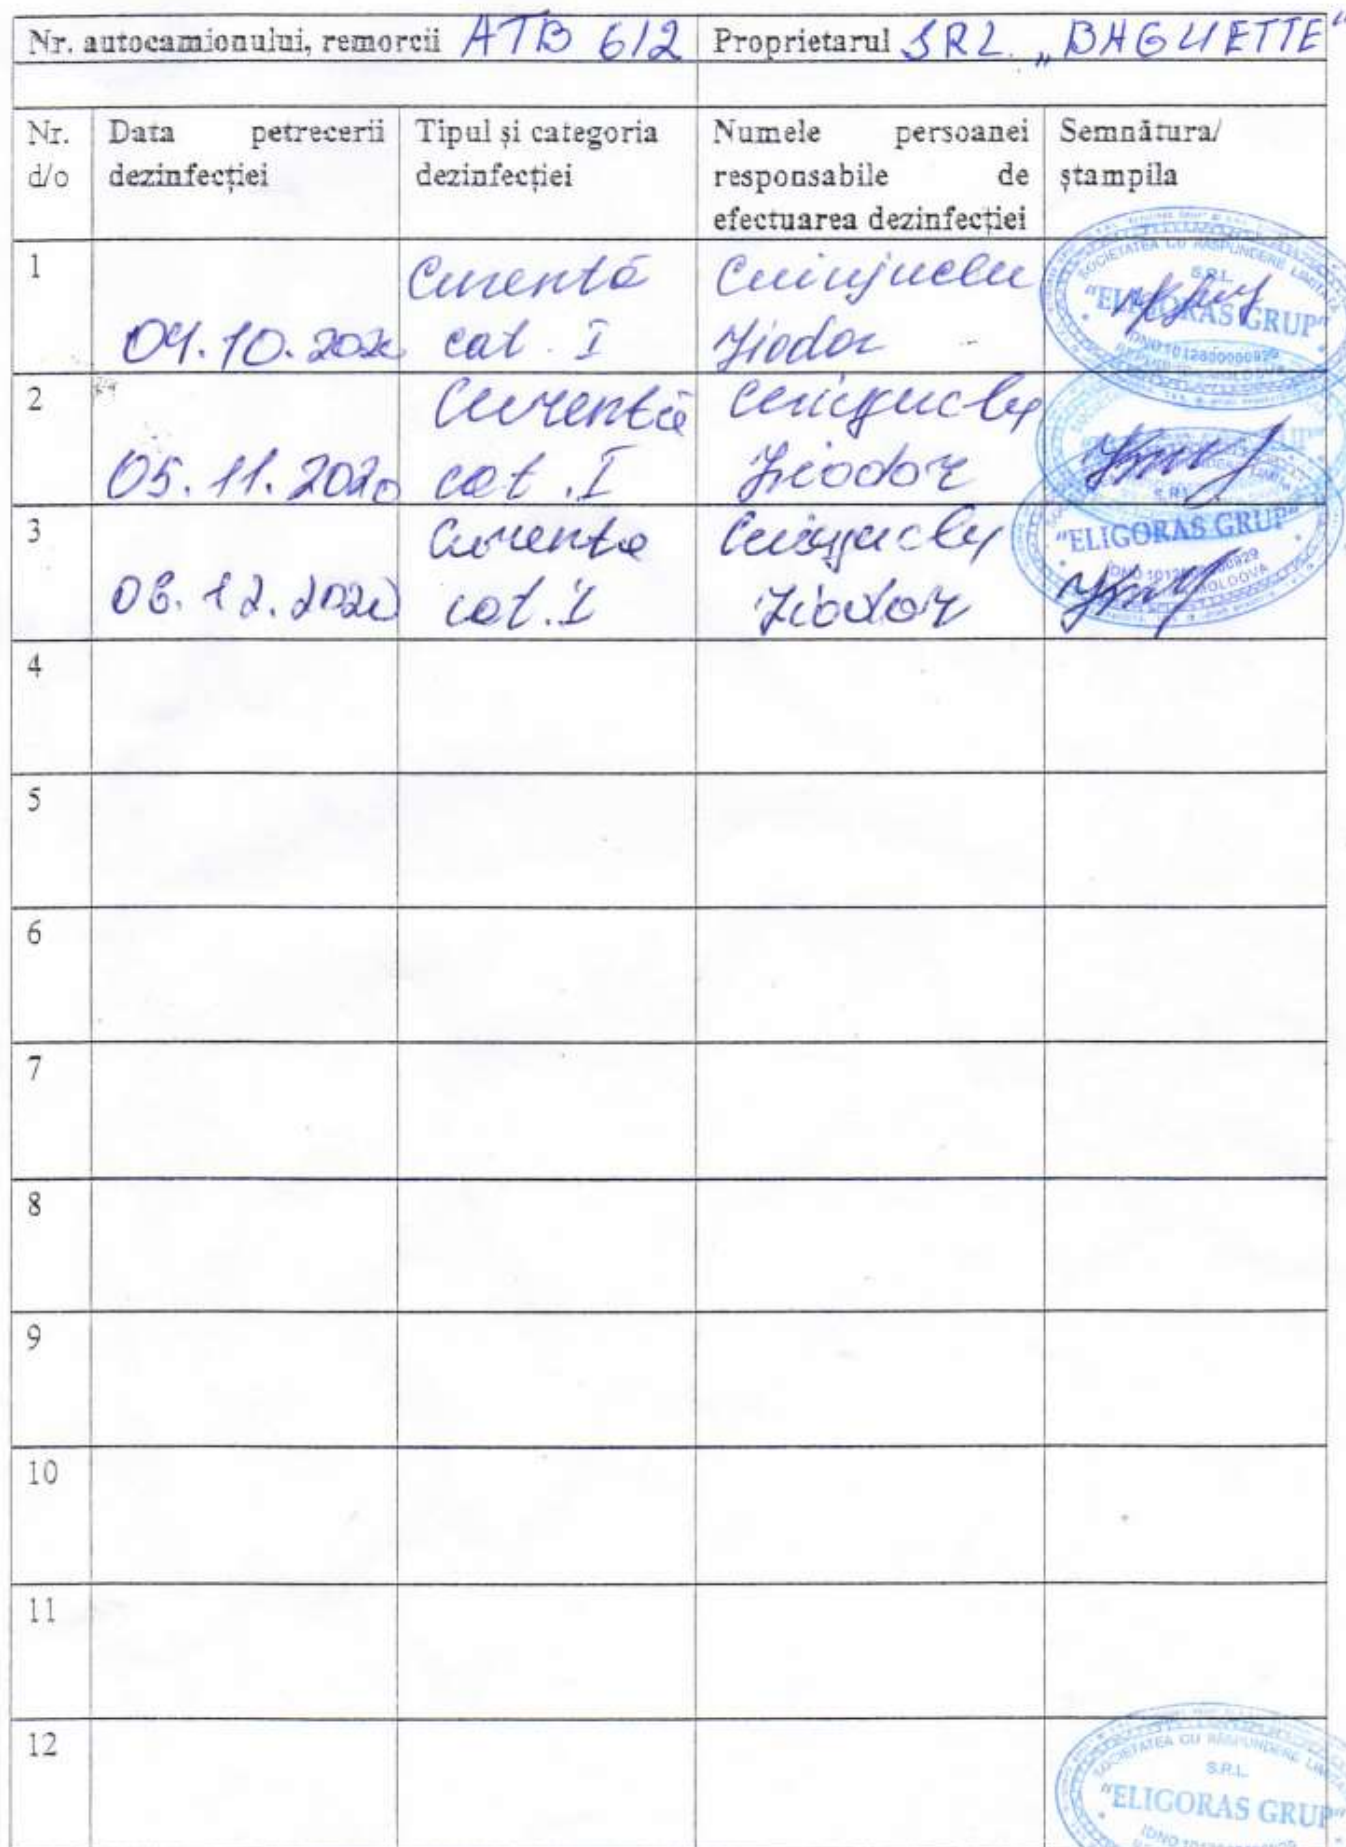 Nr. autocamionului, remorcii ATB 612 Proprietarul SRL „BAGUETTE"
Nr. d/o
Data petrecerii dezinfecției
Tipul și categoria dezinfecției
Numele persoanei responsabile de efectuarea dezinfecției
Semnătura/ ștampila
1
04.10.2020
Curentă
cat. I
SOCIETATEA CU RĂSPUNDERE LIMITATĂ
S.R.L.
"ELIGORAS GRUP"
2
05.11.2020
Curentă
cat. I
3
06.12.2020
Curenta
cat. I
S.R.L.
"ELIGORAS GRUP"
MOLDOVA
4
5
6
7
8
9
10
11
12
SOCIETATEA CU RĂSPUNDERE LIMITATĂ
S.R.L.
"ELIGORAS GRUP"